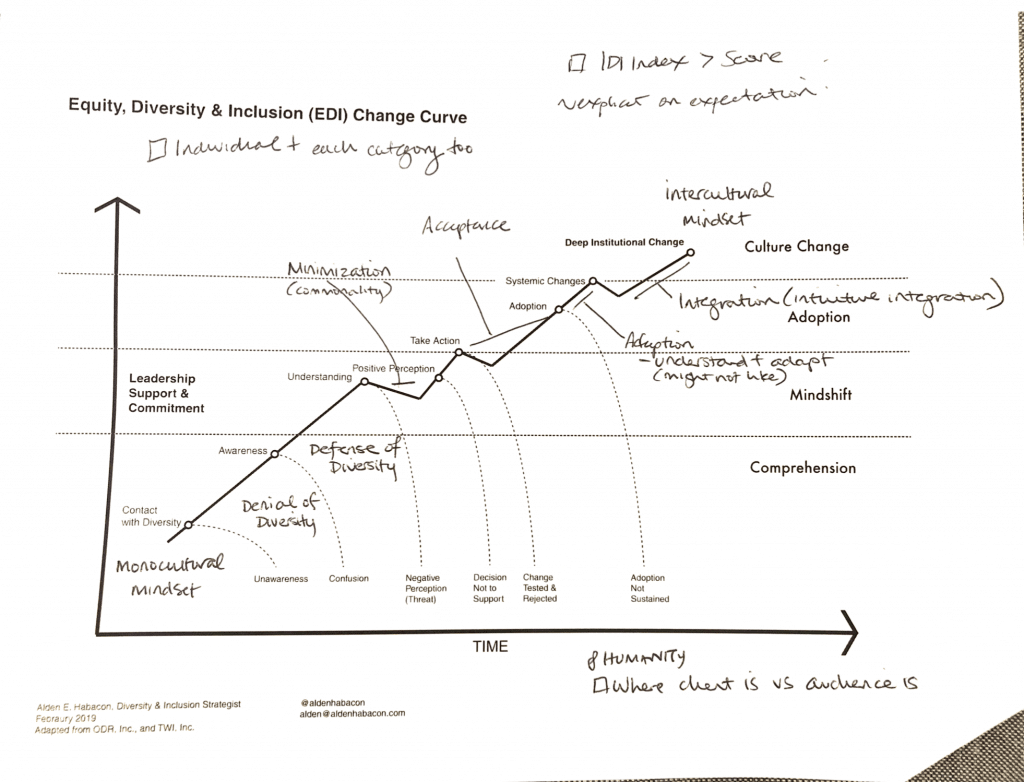 □ IDI Index > Score
explicit on expectation
Equity, Diversity & Inclusion (EDI) Change Curve
□ Individual + each category too
intercultural
mindset
Acceptance
Deep Institutional Change
Culture Change
Minimization
(commonality)
Systemic Changes
Integration (intuitive integration)
Adoption
Adoption
Take Action
Adaption
- understand + adapt
(might not like)
Positive Perception
Understanding
Leadership
Support &
Commitment
Mindshift
Awareness
Defense of
Diversity
Comprehension
Denial of
Diversity
Contact
with Diversity
Monocultural
mindset
Unawareness
Confusion
Negative
Perception
(Threat)
Decision
Not to
Support
Change
Tested &
Rejected
Adoption
Not
Sustained
TIME
HUMANITY
□ Where client is vs audience is
Alden E. Habacon, Diversity & Inclusion Strategist
Febraury 2019
Adapted from ODR, Inc., and TWI, Inc.
@aldenhabacon
alden@aldenhabacon.com